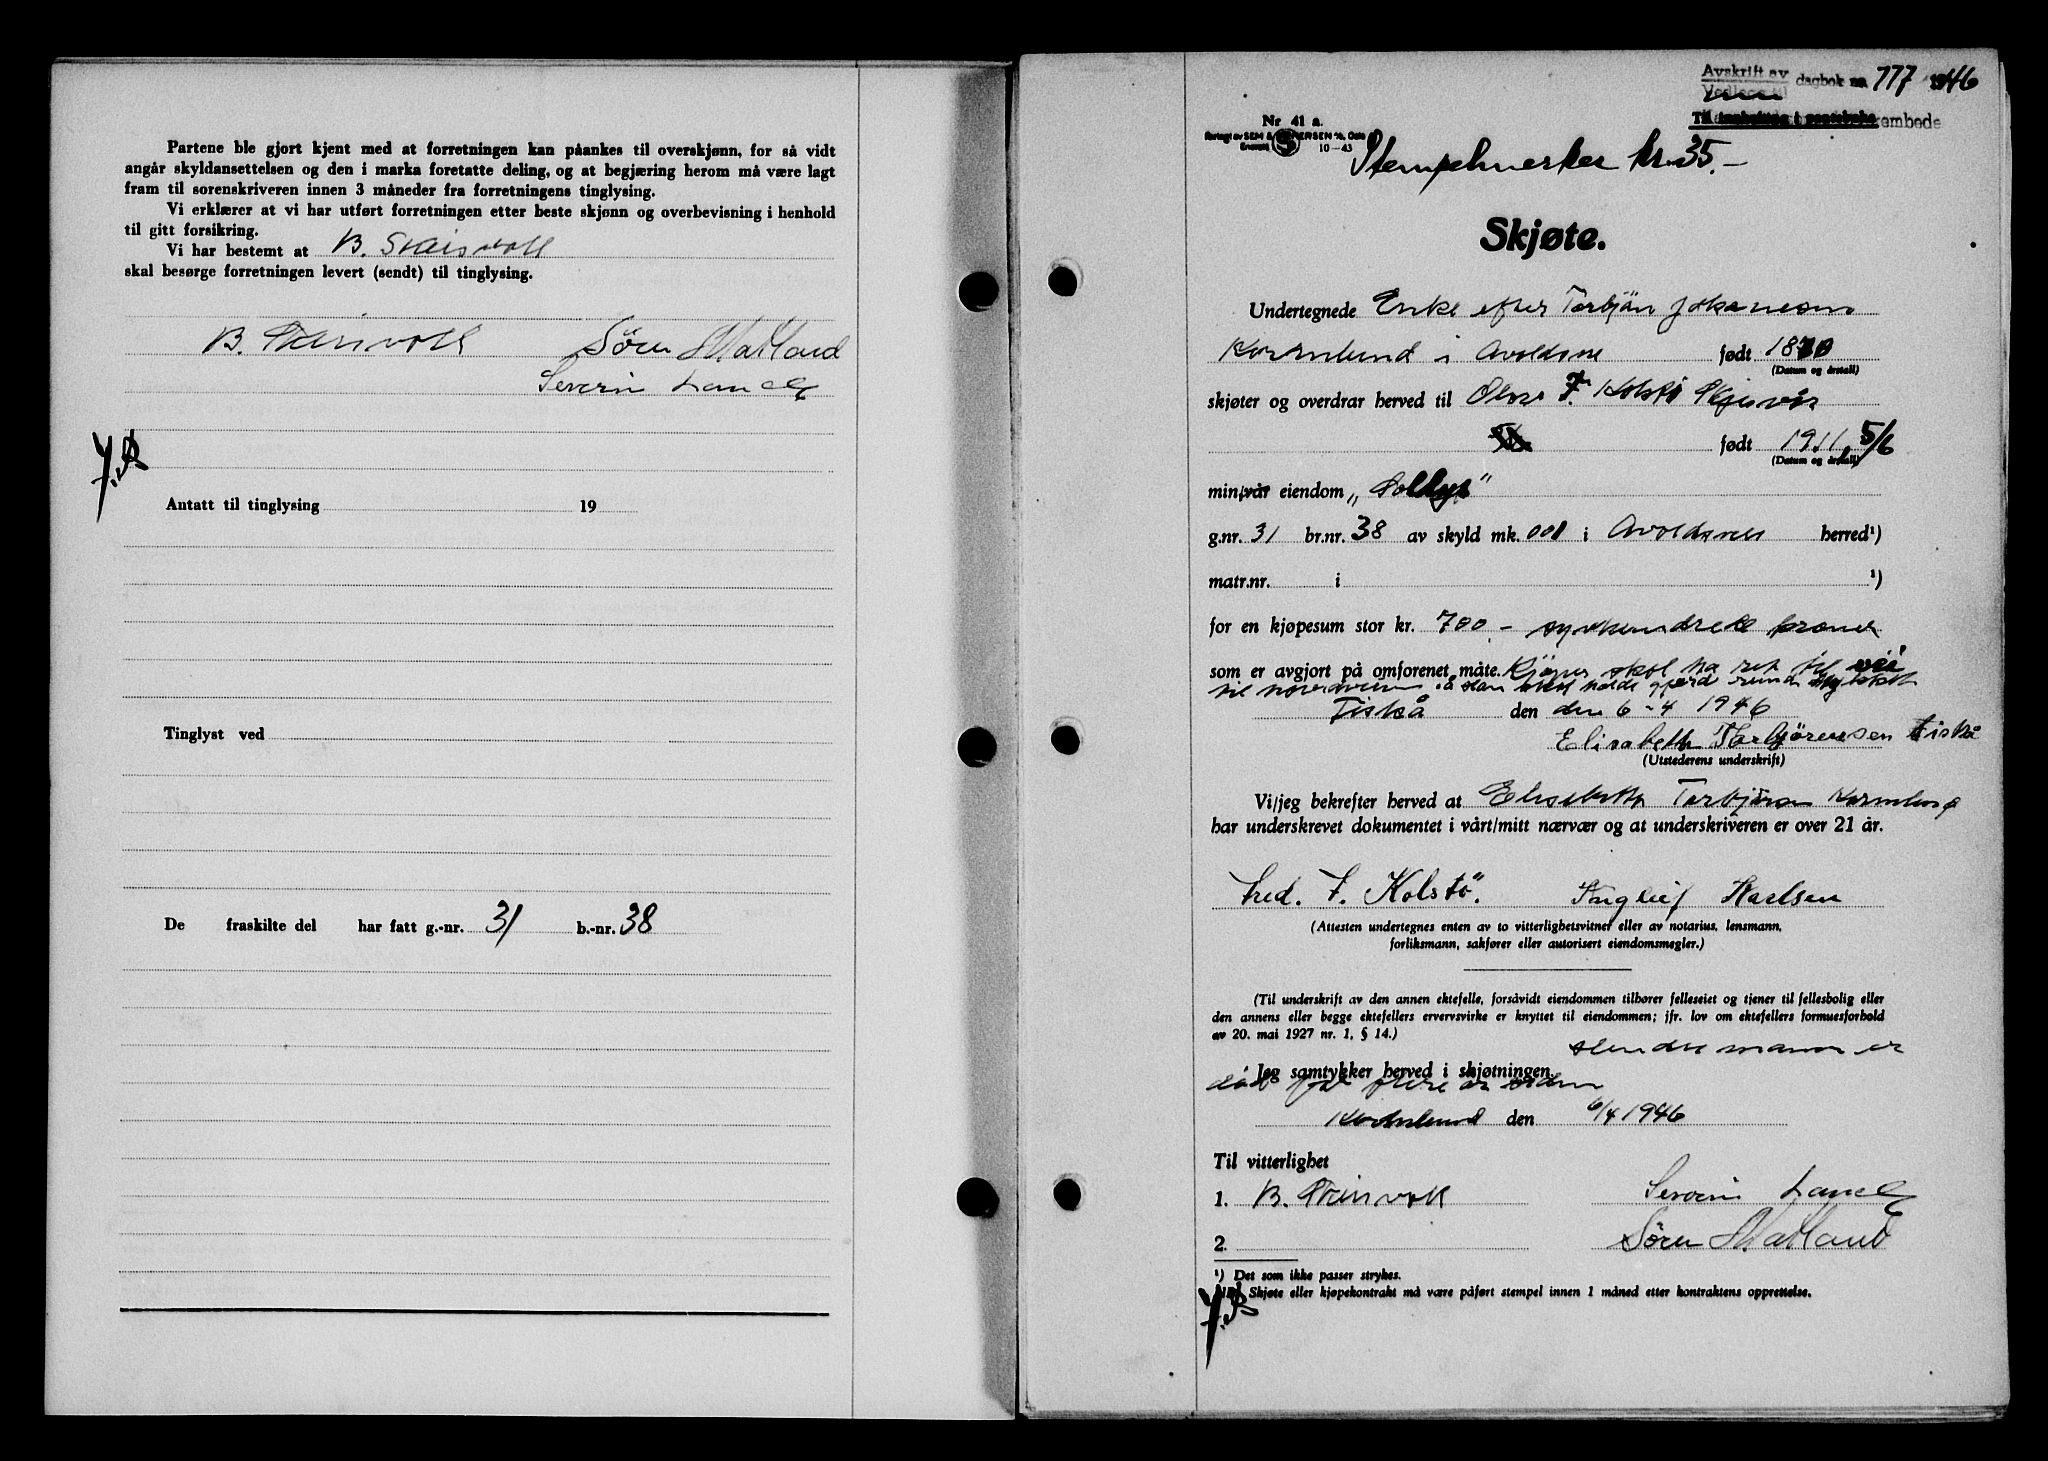 Partene ble gjort kjent med at forretningen kan påankes til overskjønn, for så vidt
angår skyldansettelsen og den i marka foretatte deling, og at begjæring herom må være lagt
fram til sorenskriveren innen 3 måneder fra forretningens tinglysing.
Vi erklærer at vi har utført forretningen etter beste skjønn og overbevisning i henhold
til gitt forsikring.
Vi har bestemt at B. Stæinsvoll
skal besørge forretningen levert (sendt) til tinglysing.
B. Stæinsvoll Sören Matland
Severin
Antatt til tinglysing 19
Tinglyst ved
De fraskilte del har fatt g.-nr. 31 b.-nr. 38
Avskrift av dagbok nr. 777 1946
Vedlegg til
Til innhefting i panteboka
Nr 41 a.
Forlagt av SEM & STENERSEN A/S, Oslo
10-43
Stempelmerker kr. 35.-
Skjøte.
Undertegnede Enke efter Torbjön Johanesen
Kornelund i Avoldsne født 1870
(Datum og årstall)
skjøter og overdrar herved til F. Kolstö
født 1911, 5/6
(Datum og årstall)
min/vår eiendom „ "
g.nr. 31 br.nr. 38 av skyld mk. 001 i Avoldsnes herred¹)
matr.nr. i ¹)
for en kjøpesum stor kr. 700 - syvhundrede kroner
som er avgjort på omforenet måte. Kjöper skal ha ret til vei
til han skal holde gjerd rundt
Fiskå den den 6-4 1946
Elisabeth Thorbjörensen Fiskå
(Utstederens underskrift)
Vi/jeg bekrefter herved at Elisabeth Torbjörnsen Kornelund
har underskrevet dokumentet i vårt/mitt nærvær og at underskriveren er over 21 år.
Fred. F. Kolstö. Karlsen
(Attesten undertegnes enten av to vitterlighetsvitner eller av notarius, lensmann,
forliksmann, sakfører eller autorisert eiendomsmegler.)
(Til underskrift av den annen ektefelle, forsåvidt eiendommen tilhører felleseiet og tjener til fellesbolig eller
den annens eller begge ektefellers ervervsvirke er knyttet til eiendommen; jfr. lov om ektefellers formuesforhold
av 20. mai 1927 nr. 1, § 14.)
mann er
Jeg samtykker herved i skjøtningen.
död for flere år siden
Kornelund den 6/4 1946
Til vitterlighet
1. B. Stæinsvoll Severin
2. Sören Matland
¹) Det som ikke passer strykes.
Skjøte eller kjøpekontrakt må være påført stempel innen 1 måned etter kontraktens opprettelse.